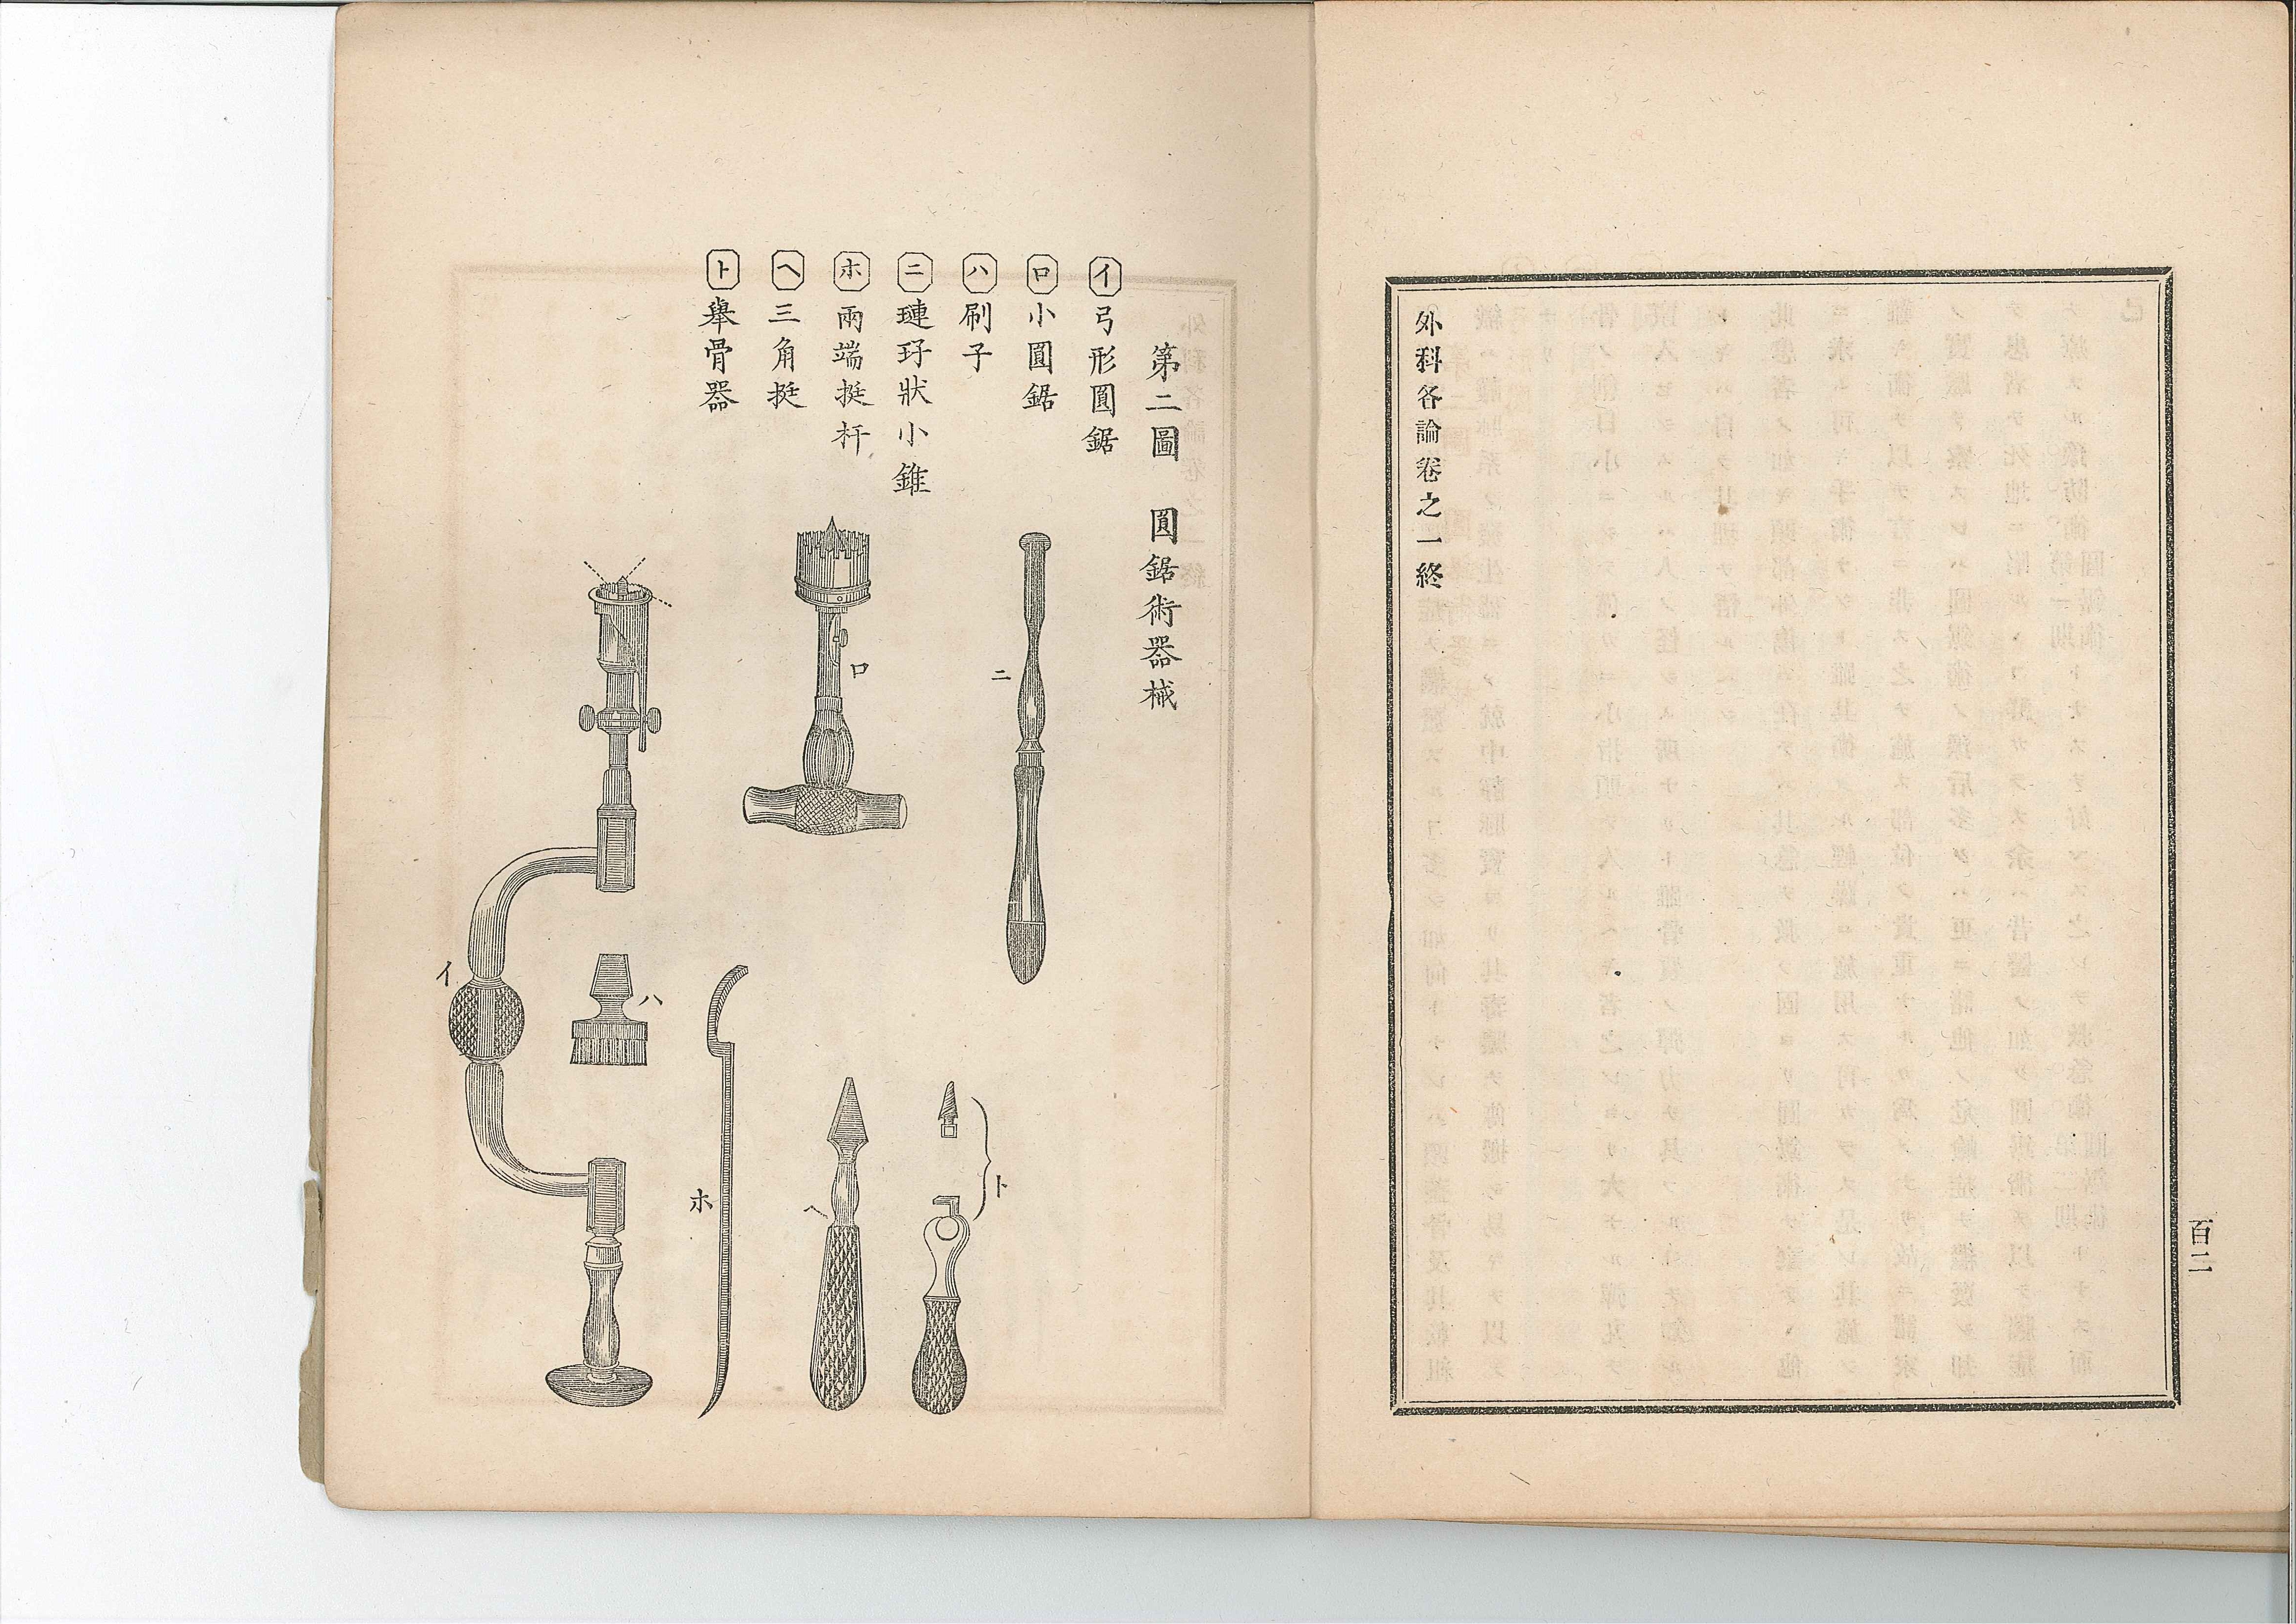 外科各論卷之一終
百二
第二圖　圓鋸術器械
イ 弓形圓鋸
ロ 小圓鋸
ハ 刷子
ニ 璉玗狀小錐
ホ 兩端挺杆
ヘ 三角挺
ト 舉骨器
ニ
ロ
イ
ハ
ホ
ヘ
ト